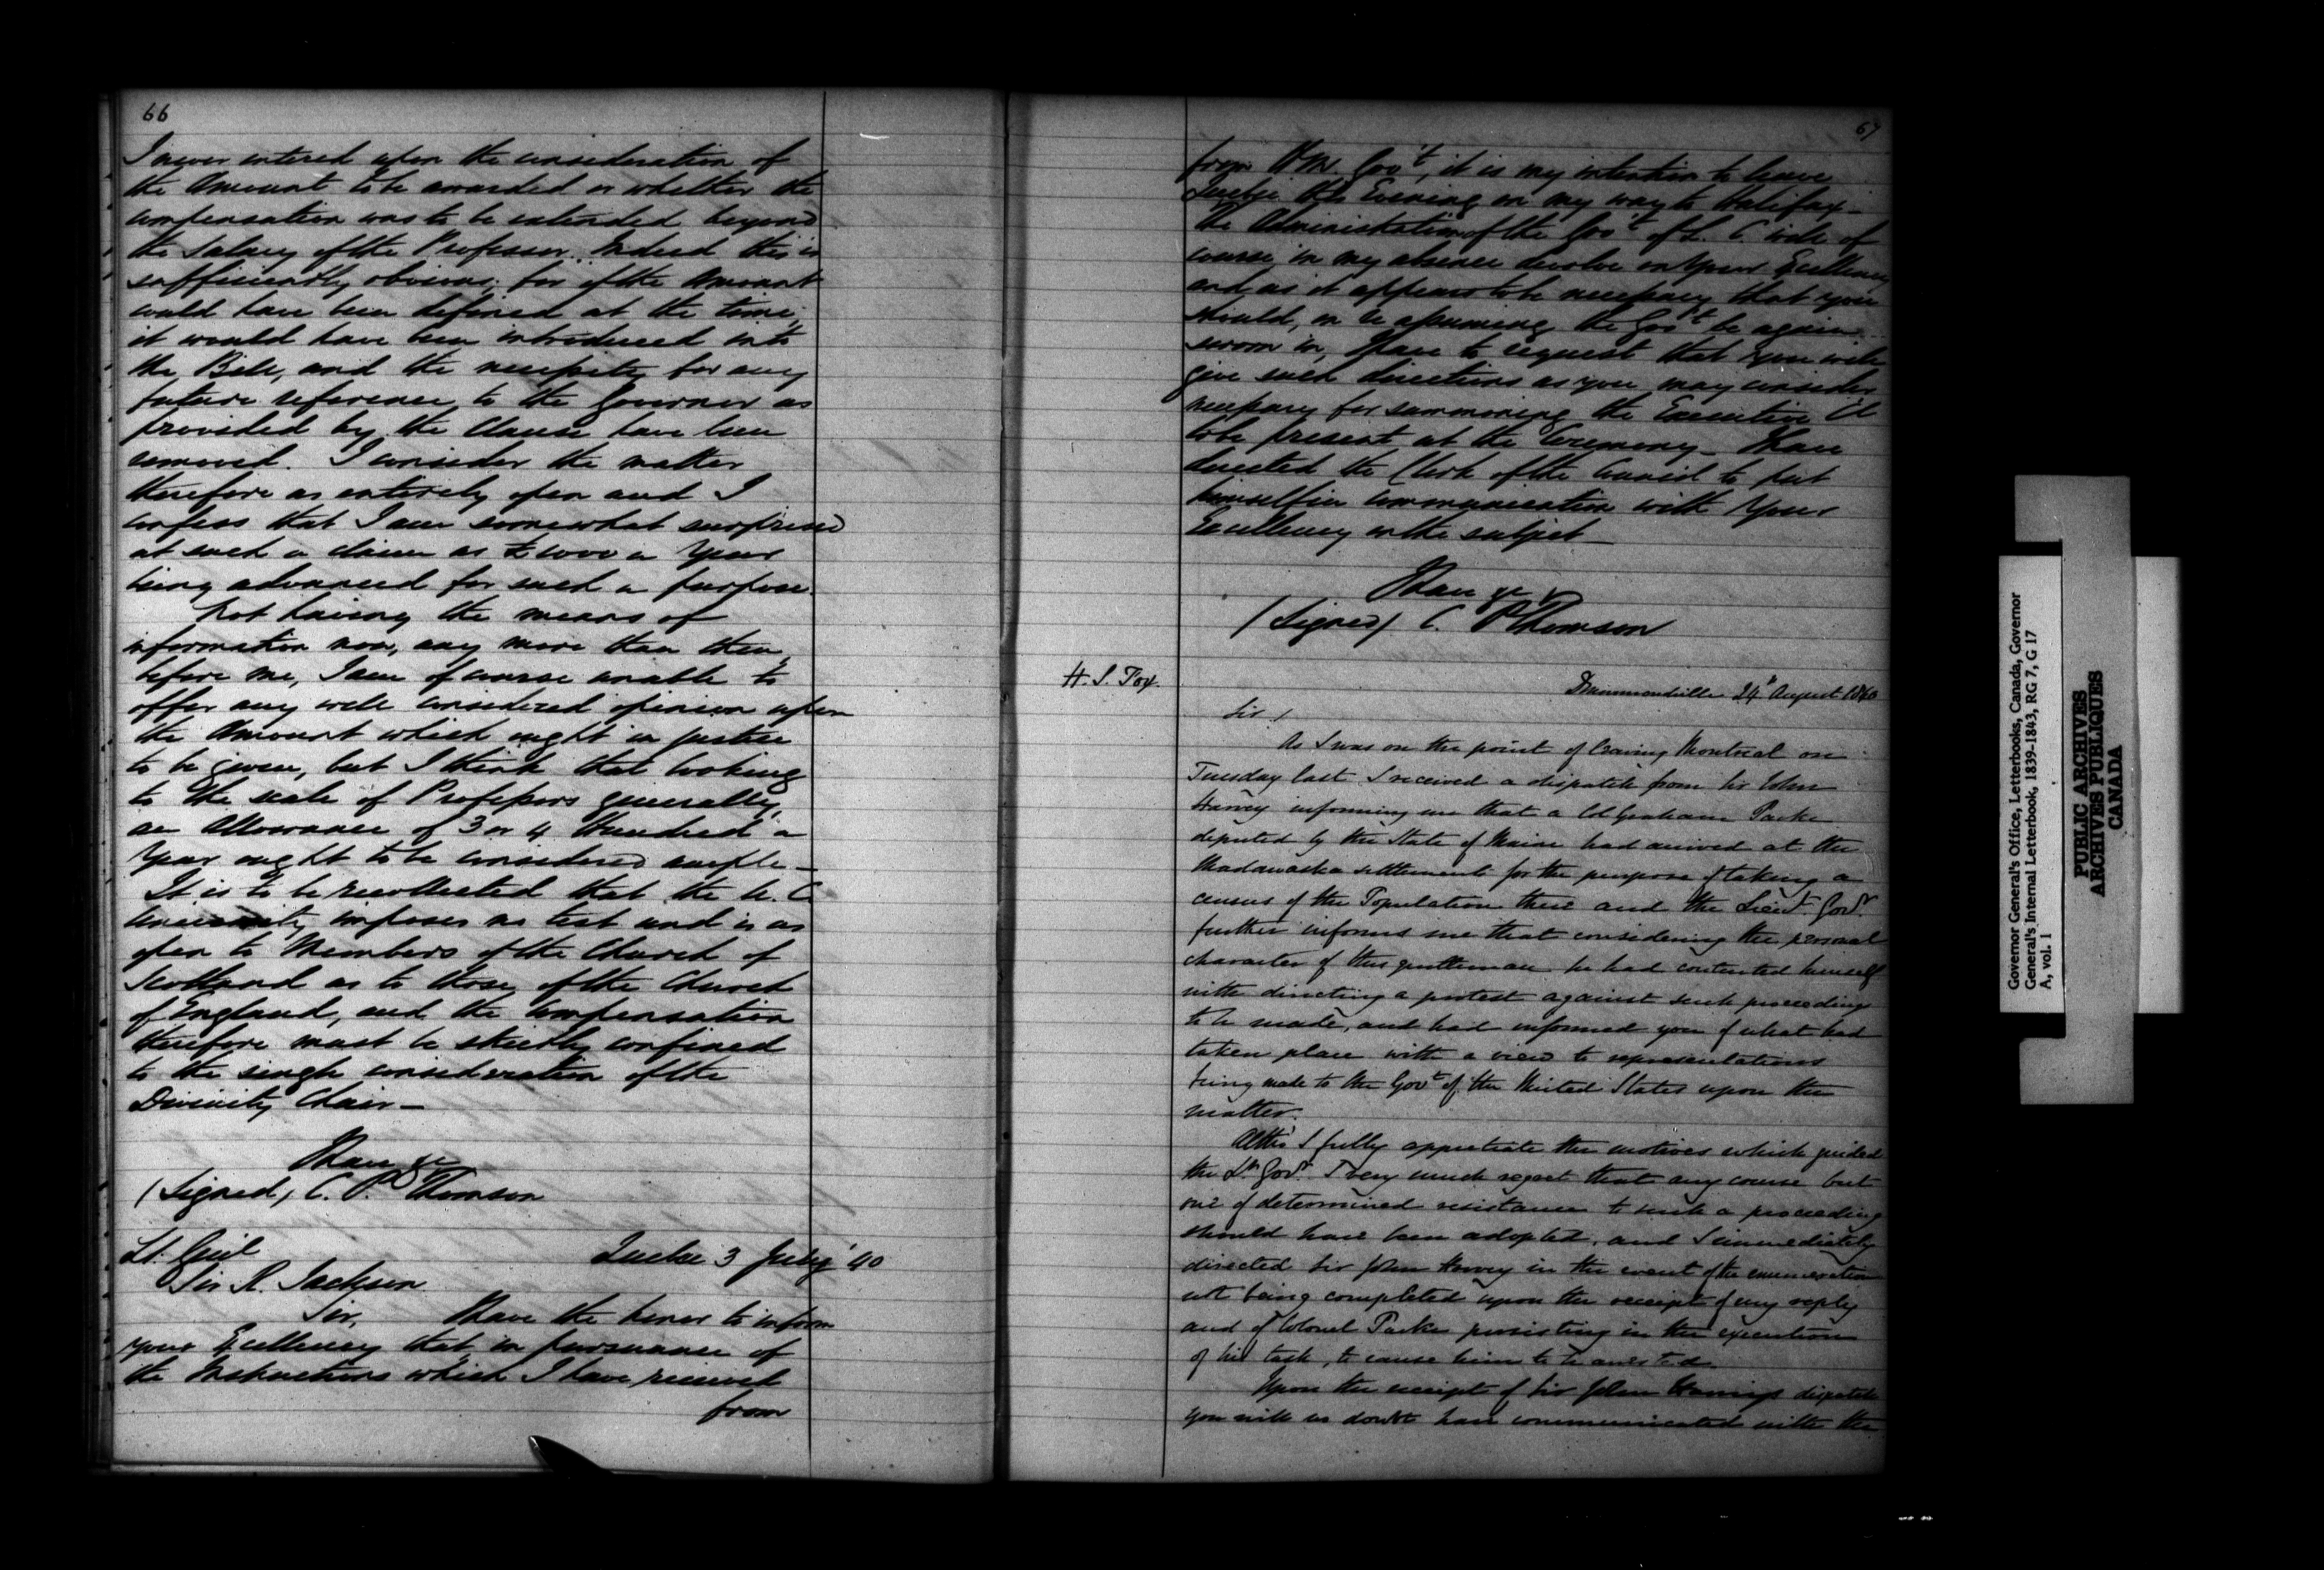 66
I never entered upon the consideration of
the Amount to be awarded or whether the
compensation was to be extended beyond
the Salary of the Professor. Indeed this is
sufficiently obvious, for if the Amount
could have been defined at the time,
it would have been introduced into
the Bill, and the necessity for any
future reference to the Governor as
provided by the Clause have been
removed. I consider the matter
therefore as entirely open and I
confess that I am somewhat surprised
at such a claim as £1000 a Year
being advanced for such a purpose.
Not having the means of
information now, any more than then,
before me, I am of course unable to
offer any well considered opinion upon
the Amount which ought in justice
to be given, but I think that looking
to the scale of Professors generally,
an Allowance of 3 or 4 Hundred a
Year ought to be considered ample —
It is to be recollected that the U. C.
University imposes no test and is as
open to Members of the Church of
Scotland as to those of the Church
of England, and the Compensation
therefore must be strictly confined
to the single consideration of the
Divinity Chair —
I have &c
(Signed) C. P. Thomson
Lt. Genl
Sir R. Jackson
Quebec 3 July '40
Sir, I have the honor to inform
your Excellency that in pursuance of
the Instructions which I have received
from
67
from H. M. Govt, it is my intention to leave
Quebec this Evening on my way to Halifax —
The Administration of the Govt of L. C. will of
course in my absence devolve on Your Excellency
and as it appears to be necessary that you
should, on assuming the Govt be again
sworn in, I have to request that you will
give such directions as you may consider
necessary for summoning the Executive Cl
to be present at the Ceremony — I have
directed the Clerk of the Council to put
himself in communication with Your
Excellency on the subject —
I have &c
(Signed) C. P Thomson
H. S. Fox.
Drummondville 24th August 1840
Sir /
As I was on the point of leaving Montreal on
Tuesday last I received a dispatch from Sir John
Harvey informing me that a Col Graham Parke
deputed by the State of Maine had arrived at the
Madawaska settlement for the purpose of taking a
census of the Population there and the Lieut. Govr.
further informs me that considering the personal
character of this gentleman he had contented himself
with directing a protest against such proceedings
to be made, and had informed you of what had
taken place with a view to representations
being made to the Govt of the United States upon the
matter.
Altho' I fully appreciate the motives which guided
the Lt. Govr. I very much regret that any course but
one of determined resistance to such a proceeding
should have been adopted, and I immediately
directed Sir John Harvey in the event of the enumeration
not being completed upon the receipt of my reply
and of Colonel Parke persisting in the execution
of his task, to cause him to be arrested.
Upon the receipt of Sir John Harvey's dispatch
you will no doubt have communicated with the
Governor General's Office, Letterbooks, Canada, Governor
General's Internal Letterbook, 1839-1843, RG 7, G 17
A, vol. 1
PUBLIC ARCHIVES
ARCHIVES PUBLIQUES
CANADA